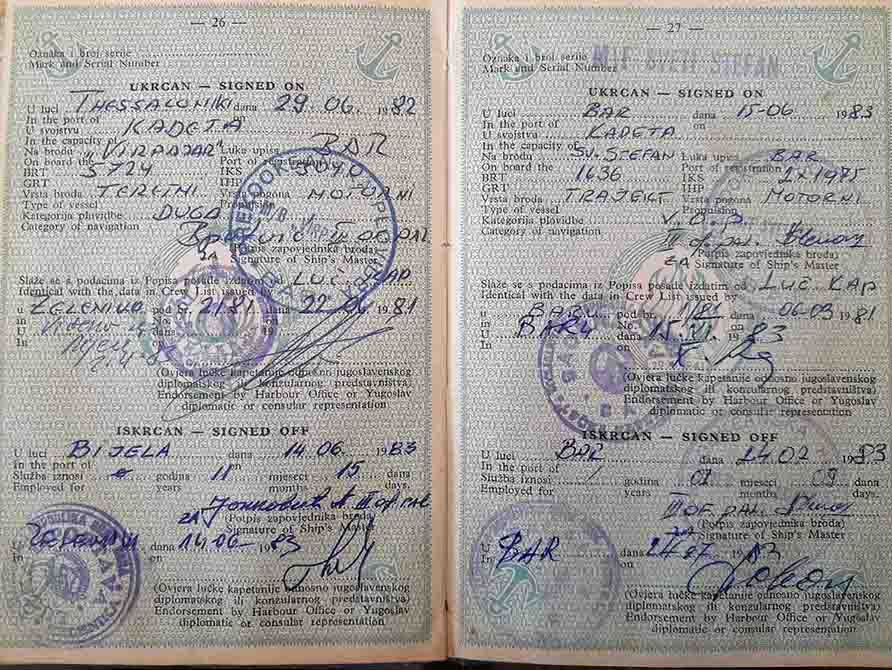 — 26 —
Oznaka i broj serije
Mark and Serial Number
UKRCAN — SIGNED ON
U luci THESSALONIKI dana 29. 06. 1982
In the port of on
U svojstvu KADETA
In the capacity of
Na brodu „VIRPAZAR" Luka upisa BAR
On board the Port of registration
BRT 5724 IKS
GRT IHP
Vrsta broda TERETNI Vrsta pogona MOTORNI
Type of vessel Propulsion
Kategorija plovidbe DUGA
Category of navigation
(Potpis zapovjednika broda)
ZA Signature of Ship's Master
Slaže se s podacima iz Popisa posade izdatim od LUČ. KAP
Identical with the data in Crew List issued by
u ZELENIKO pod br. 21/81 dana 22-06 1981
in No. on
U dana 19
In on
(Ovjera lučke kapetanije odnosno jugoslavenskog
diplomatskog ili konzularnog predstavništva)
Endorsement by Harbour Office or Yugoslav
diplomatic or consular representation
ISKRCAN — SIGNED OFF
U luci BIJELA dana 14 06. 1983
In the port of on
Služba iznosi godina 11 mjeseci 15 dana
Employed for years months days.
(Potpis zapovjednika broda)
ZA Signature of Ship's Master
U dana 14-06- 1983
In on
(Ovjera lučke kapetanije odnosno jugoslavenskog
diplomatskog ili konzularnog predstavništva)
Endorsement by Harbour Office or Yugoslav
diplomatic or consular representation
— 27 —
Oznaka i broj serije M/F SVETI STEFAN
Mark and Serial Number
UKRCAN — SIGNED ON
U luci BAR dana 15-06 1983
In the port of on
U svojstvu KADETA
In the capacity of
Na brodu SV. STEFAN Luka upisa BAR
On board the Port of registration
BRT 1636 IKS 2x1975
GRT IHP
Vrsta broda TRAJEKT Vrsta pogona MOTORNI
Type of vessel Propulsion
Kategorija plovidbe V. O. P.
Category of navigation
III of. pal.
(Potpis zapovjednika broda)
ZA Signature of Ship's Master
Slaže se s podacima iz Popisa posade izdatim od LUČ. KAP
Identical with the data in Crew List issued by
u BARU pod br. 1/81 dana 06-03 1981
in No. on
U BARU dana 15. VI. 1983
In on
(Ovjera lučke kapetanije odnosno jugoslavenskog
diplomatskog ili konzularnog predstavništva)
Endorsement by Harbour Office or Yugoslav
diplomatic or consular representation
ISKRCAN — SIGNED OFF
U luci BAR dana 24 07 1983
In the port of on
Služba iznosi godina 01 mjeseci 09 dana
Employed for years months days.
III OF. PAL.
(Potpis zapovjednika broda)
ZA Signature of Ship's Master
U BAR dana 24-07 1983
In on
(Ovjera lučke kapetanije odnosno jugoslavenskog
diplomatskog ili konzularnog predstavništva)
Endorsement by Harbour Office or Yugoslav
diplomatic or consular representation